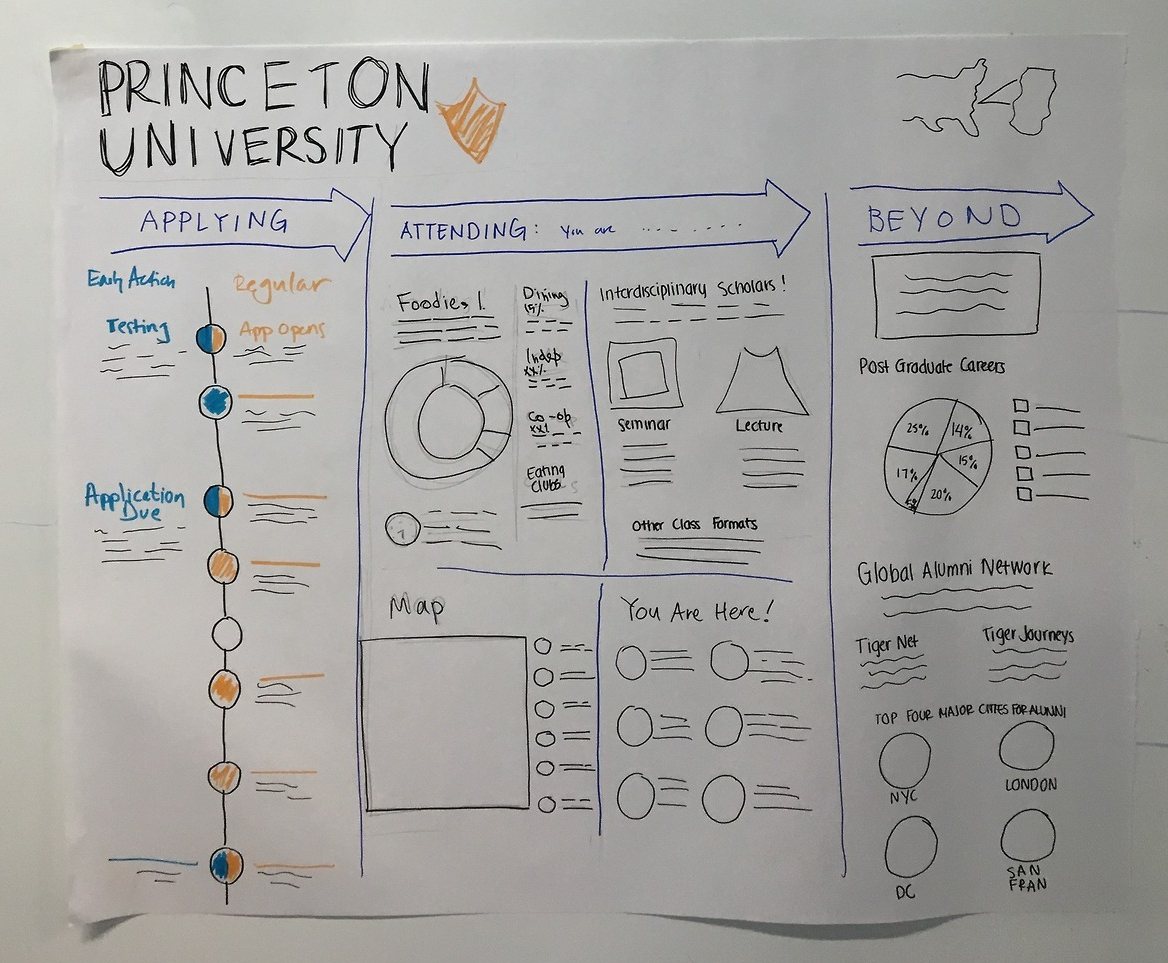 PRINCETON
UNIVERSITY
APPLYING
Early Action
Regular
Testing
App Opens
Application
Due
ATTENDING: you are ...........
Foodies!
Dining
15%
Indep
xx%
Co-op
xx%
Eating
Clubs
Interdisciplinary Scholars!
Seminar
Lecture
Other Class Formats
Map
You Are Here!
BEYOND
Post Graduate Careers
25%
14%
15%
20%
17%
Global Alumni Network
Tiger Net
Tiger Journeys
TOP FOUR MAJOR CITIES FOR ALUMNI
NYC
LONDON
DC
SAN
FRAN